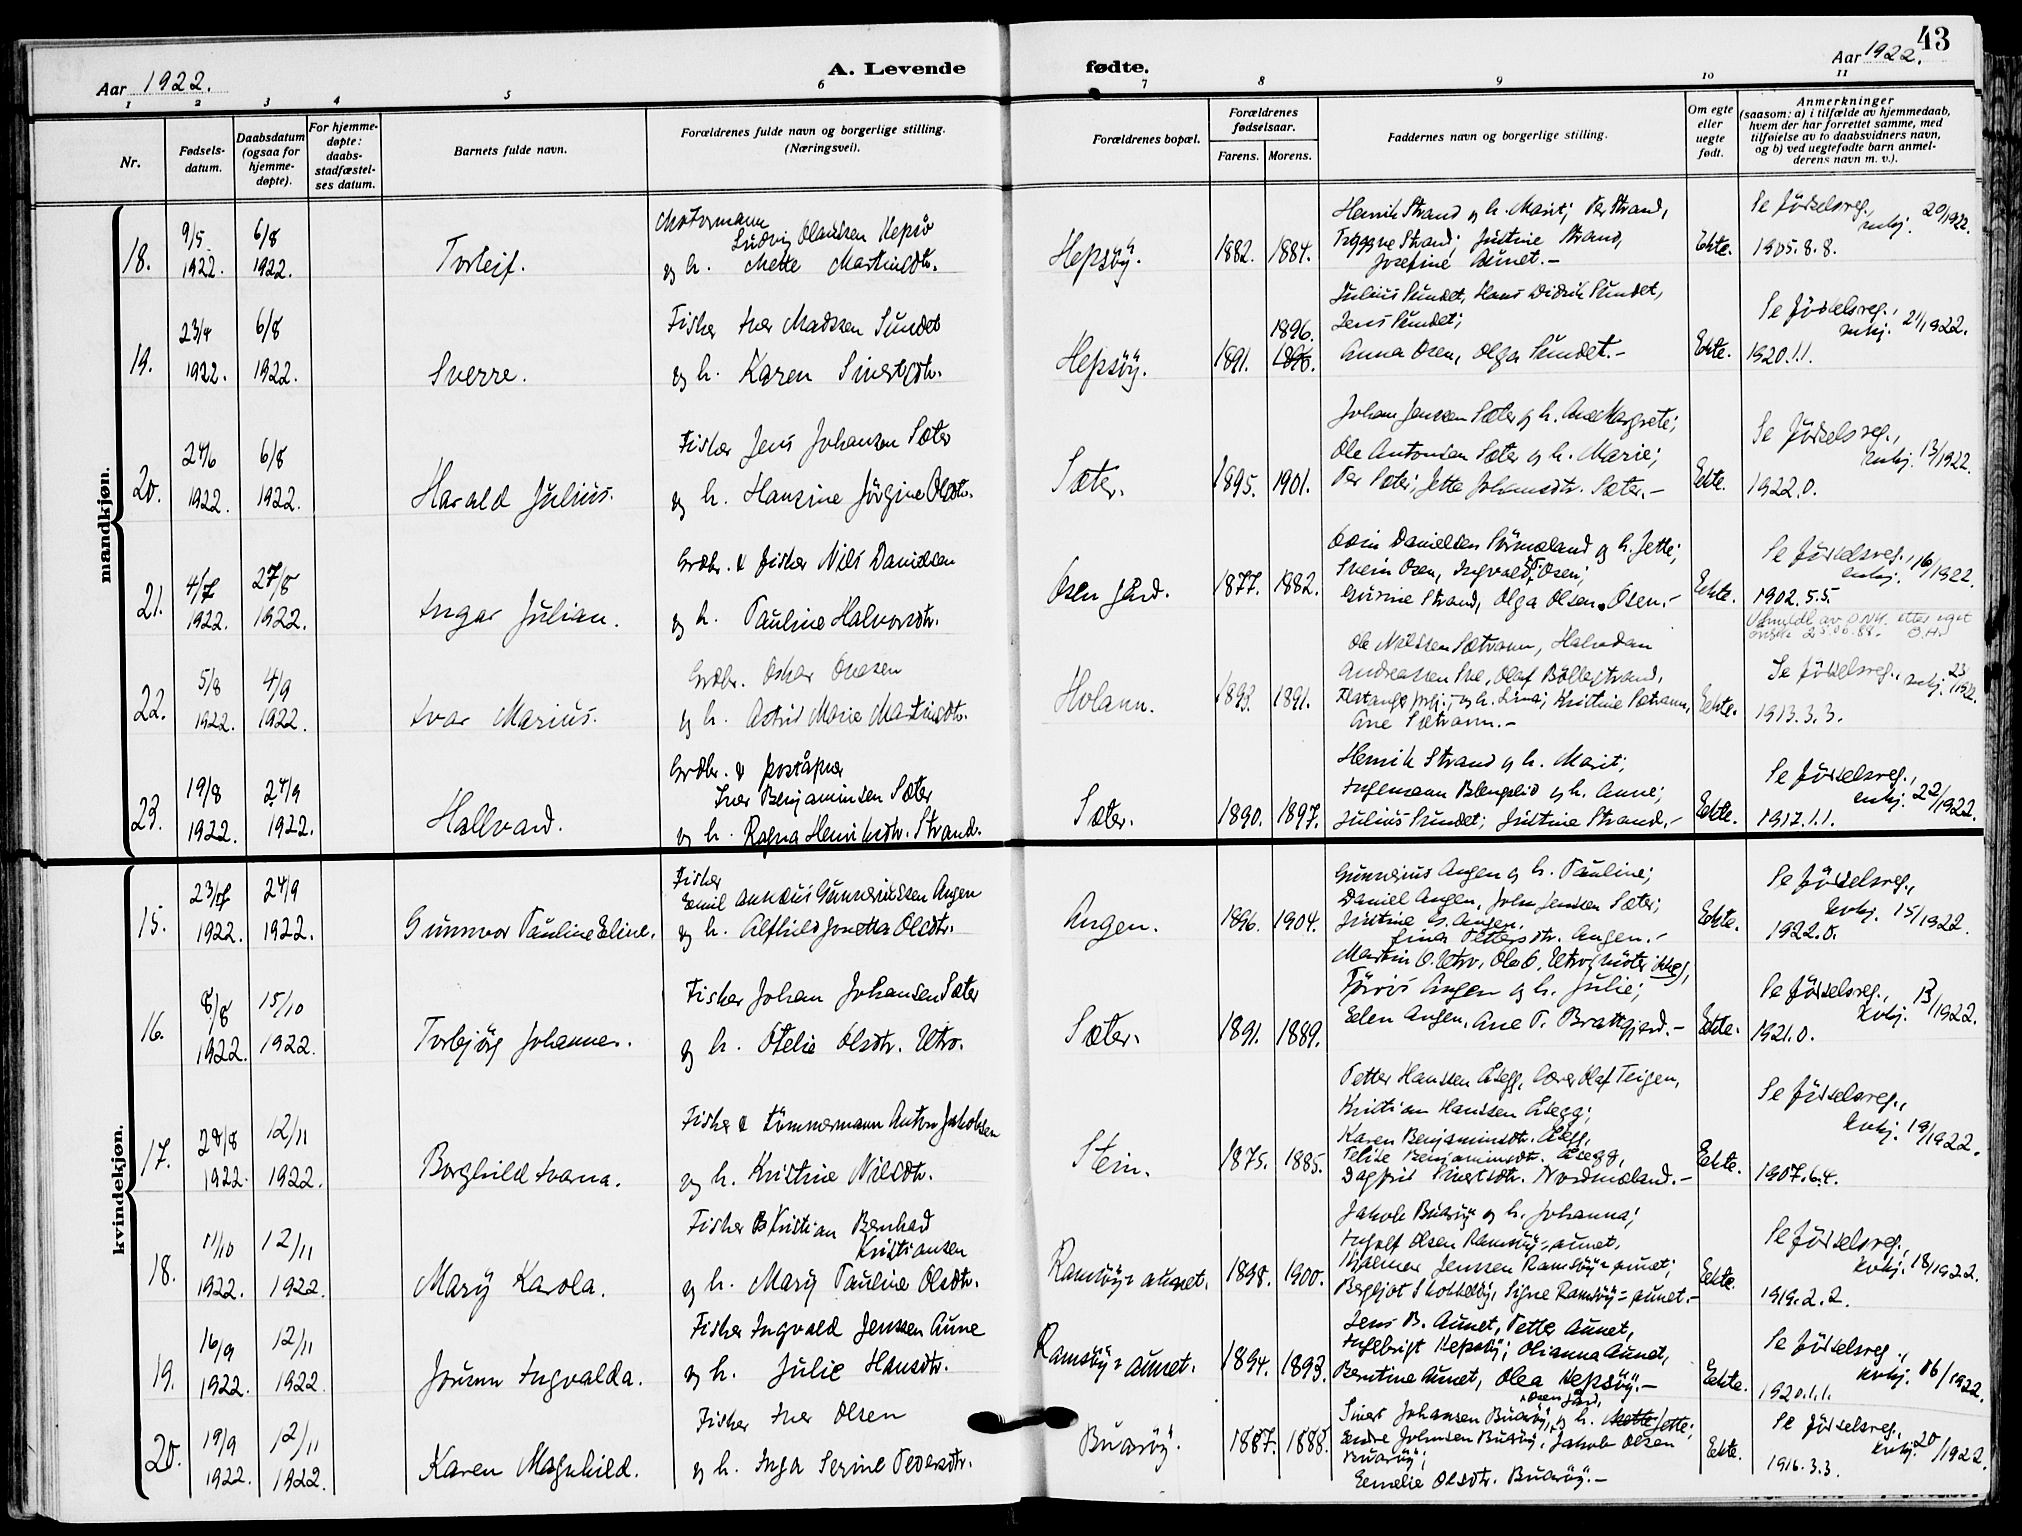 43
Aar 1922.
A. Levende fødte.
Aar 1922.
1 2 3 4 5 6 7 8 9 10 11
Nr.
Fødsels-
datum.
Daabsdatum
(ogsaa for
hjemme-
døpte).
For hjemme-
døpte:
daabs-
stadfæstel-
ses datum.
Barnets fulde navn.
Forældrenes fulde navn og borgerlige stilling.
(Næringsvei).
Forældrenes bopæl.
Forældrenes
fødselsaar.
Farens. Morens.
Faddernes navn og borgerlige stilling.
Om egte
eller
uegte
født.
Anmerkninger
(saasom: a) i tilfælde av hjemmedaab,
hvem der har forrettet samme, med
tilføielse av to daabsvidners navn,
og b) ved uegtefødte barn anmel-
derens navn m. v.).
mandkjøn.
18.
9/5
1922.
6/8
1922.
Torleif.
Motormann
Ludvig Olaussen Hepsø
og h. Mette Martinsdtr.
Hepsöy.
1882. 1884.
Henrik Strand og h. Marit; Per Strand,
Tryggve Strand; Justine Strand,
Josefine Aunet.-
Ekte.
Se fødselsreg.,
mkj. 20/1922.
1905. 8. 8.
19.
23/4
1922.
6/8
1922.
Sverre.
Fisker Iver Madssen Sundet
og h. Karen Sivertsdtr.
Hepsöy.
1891. 1896.
Julius Sundet, Hans Didrik Sundet,
Jens Sundet;
Anna Osen, Olga Sundet.-
Ekte.
Se fødselsreg.,
mkj. 21/1922.
1920. 1. 1.
20.
24/6
1922.
6/8
1922.
Harald Julius.
Fisker Jens Johansen Sæter
og h. Hansine Jörgine Olsdtr.
Sæter.
1895. 1901.
Johan Jenssen Sæter og h. Ane Margrete;
Ole Antonsen Sæter og h. Marie;
Per Sæter; Jette Johansdtr. Sæter.-
Ekte.
Se fødselsreg.,
mkj. 13/1922.
1922. 0.
21.
4/7
1922.
27/8
1922.
Ingar Julian.
Grdbr. & fisker Nils Danielsen
og h. Pauline Halvorsdtr.
Osen gård.
1877. 1882.
Odin Danielsen Sörmæland og h. Jette;
Svein Osen, Ingvald Osen;
Gurine Strand, Olga Olsen Osen.-
Ekte.
Se fødselsreg.,
mkj. 16/1922.
1902. 5. 5.
Utmeldt av DNK etter eget
ønske 25.06.88. O.H.
22.
5/8
1922.
4/9
1922.
Ivar Marius.
Grdbr. Oskar Ovesen
og h. Astrid Marie Martinsdtr.
Holann.
1893. 1891.
Ole Nilssen Sætvann, Halvdan
Andreassen Sve, Olaf Böllestrand,
og h. Lina; Kristine Sætvann,
Ane Sætvann.-
Ekte.
Se fødselsreg.,
mkj. 23/1922.
1913. 3. 3.
23.
19/8
1922.
24/9
1922.
Hallvard.
Grdbr. & poståpner
Iver Benjaminsen Sæter
og h. Ragna Henriksdtr. Strand.
Sæter.
1890. 1897.
Henrik Strand og h. Marit;
Ingemann Blengslid og h. Anne;
Julius Sundet; Justine Strand.-
Ekte.
Se fødselsreg.,
mkj. 22/1922.
1917. 1. 1.
kvindekjøn.
15.
23/7
1922.
24/9
1922.
Gunnvor Pauline Eline.
Fisker
Emil Annæus Gunneriussen Angen
og h. Alfhild Jonetta Olsdtr.
Angen.
1896. 1904.
Gunnerius Angen og h. Pauline;
Daniel Angen, John Jenssen Sæter;
Justine G. Angen,
Lina Pettersdtr. Angen.-
Ekte.
Se fødselsreg.,
kvkj. 15/1922.
1922. 0.
16.
8/8
1922.
15/10
1922.
Torbjörg Johanna.
Fisker Johan Johansen Sæter
og h. Otelie Olsdtr. Utro.
Sæter.
1891. 1889.
Martin O. Utro, Ole O. Utro (möter ikke),
Törris Angen og h. Julie;
Elen Angen, Ane P. Brattgjerd.-
Ekte.
Se fødselsreg.,
kvkj. 13/1922.
1921. 0.
17.
28/8
1922.
12/11
1922.
Borghild Ivarna.
Fisker & tömmermann Anton Jakobsen
og h. Kristine Nilsdtr.
Stein.
1875. 1885.
Petter Hanssen Åsegg, lærer Olaf Teigen,
Kristian Hanssen Åsegg;
Karen Benjaminsdtr. Åsegg,
Benjaminsdtr. Åsegg,
Dagfrid Sivertsdtr. Nordmæland.-
Ekte.
Se fødselsreg.,
kvkj. 19/1922.
1907. 6. 4.
18.
11/10
1922.
12/11
1922.
Mary Karola.
Fisker Kristian Bernhad
Kristiansen
og h. Mary Pauline Olsdtr.
Ramsöy=aunet.
1898. 1900.
Jakob Buaröy og h. Johanna;
Ingolf Olsen Ramsöy=aunet,
Hjalmar Jenssen Ramsöy=aunet;
Bergljot Skottsöy, Signe Ramsöy=aunet.-
Ekte.
Se fødselsreg.,
kvkj. 18/1922.
1919. 2. 2.
19.
16/9
1922.
12/11
1922.
Jörunn Ingvalda.
Fisker Ingvald Jenssen Aune
og h. Julie Hansdtr.
Ramsöy=aunet.
1894. 1893.
Jens B. Aunet, Petter Aunet,
Ingebrigt Hepsöy; Olianna Aunet,
Berntine Aunet, Olea Hepsöy.-
Ekte.
Se fødselsreg.,
kvkj. 16/1922.
1920. 1. 1.
20.
19/9
1922.
12/11
1922.
Karen Magnhild.
Fisker Iver Olsen
og h. Inga Serine Pedersdtr.
Buaröy.
1887. 1888.
Osen gård,
Sivert Johansen Buaröy, og h. Jette;
Endre Johnsen Buaröy, Jakob Olsen
Buaröy;
Emelie Olsdtr. Buaröy.-
Ekte.
Se fødselsreg.,
kvkj. 20/1922.
1916. 3. 3.